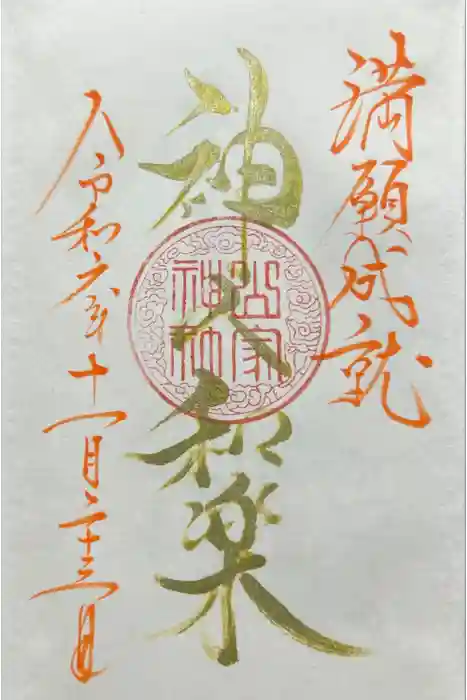 満願成就
神人和楽
山家
神社
令和六年十一月二十三日